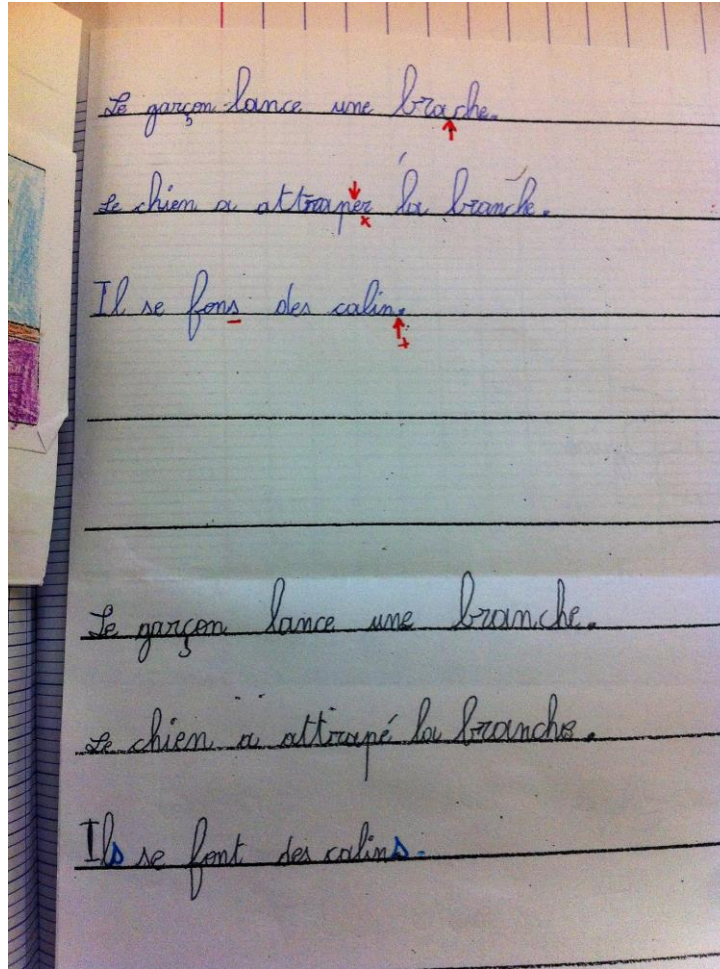 Le garçon lance une brache.
Le chien a attraper la branche.
Il se fons des calin.
Le garçon lance une branche.
Le chien a attrapé la branche.
Ils se font des calins.